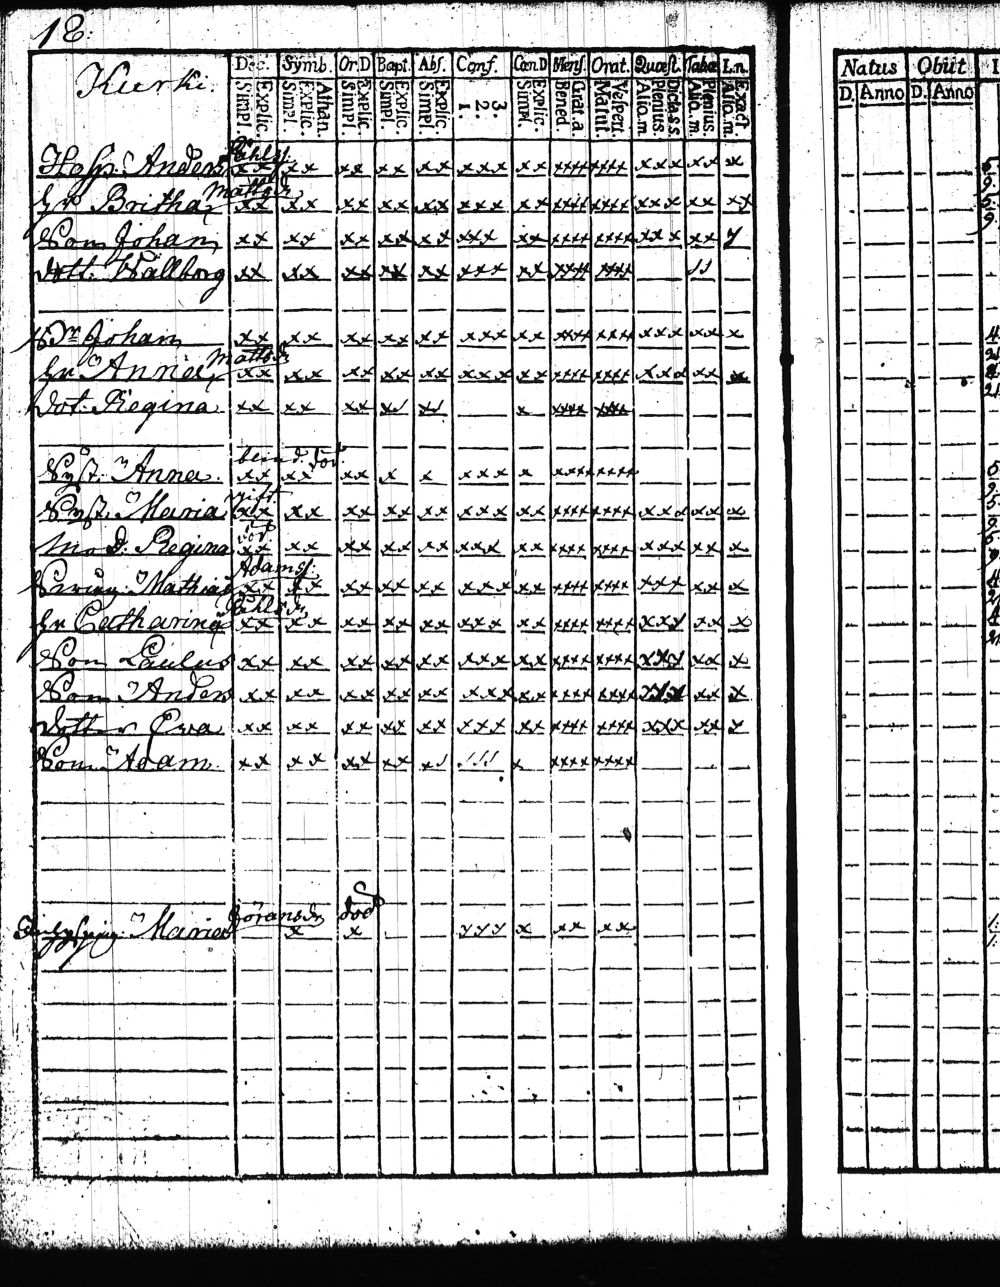 18.
Kierki.
Dec. Symb. Or.D Bapt. Abs. Conf. Cœn.D Mens. Orat. Quæst. Tabœ I.n.
Simpl. Explic. Simpl. Explic. Athan. Simpl. Explic. Simpl. Explic. Simpl. Explic. 1. 2. 3. Simpl. Explic. Bened. Grat.a Matut. Vespert. Alio.m. Plenius. Dicta s.s. Alio.m. Plenius. Alio.m. Exact
Påhlss.
Hosp. Anders xx xx xx xx xx xxx xx xxxx xxxx xxx xx x
Mattsdr
Hu Britha xx xx xx xx xx xxx xx xxxx xxxx xxx xx xx
Son Johan xx xx xx xx xx xxx xx xxxx xxxx xxx xx y
Dott. Wallborg xx xx xx xx xx xxx xx xxxx xxxx ,,
Johan xx xx xx xx xx xxx xx xxxx xxxx xxx xx x
Mattsdr
Hu Anna xx xx xx xx xx xxx xx xxxx xxxx xxx xx x
Dot. Regina xx xx xx x/ x/ x xxxx xxxx
blind. död.
Syst. Anna xx xx xx x x xxx x xxxx xxxx
gift
Syst. Maria xx xx xx xx xx xxx xx xxxx xxxx xxx xx x
död
Mod. Regina xx xx xx xx xx xxx xx xxxx xxxx xxx xx x
Adamss.
Mathias xx xx xx xx xx xxx xx xxxx xxxx xxx xx x
Påhlsdr
Hu Catharina xx xx xx xx xx xxx xx xxxx xxxx xxx xx x
Son Paulus xx xx xx xx xx xxx xx xxxx xxxx xxx xx x
Son Anders xx xx xx xx xx xxx xx xxxx xxxx xxx xx x
Dotter Eva xx xx xx xx xx xxx xx xxxx xxxx xxx xx y
Son Adam xx xx xx xx x/ /// x xxxx xxxx
Göransdr död
Maria x x yyy x xx xx
Natus Obiit
D. Anno D. Anno